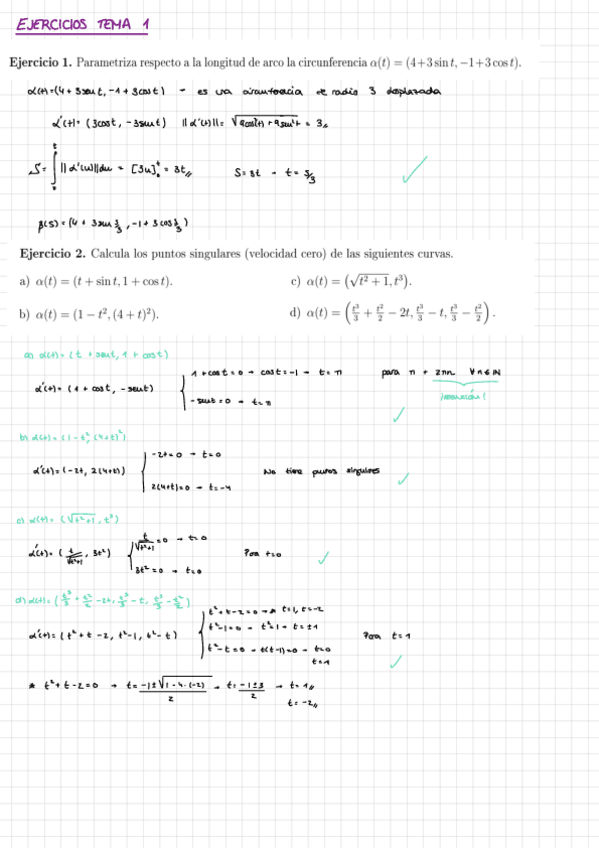 EJERCICIOS TEMA 1
Ejercicio 1. Parametriza respecto a la longitud de arco la circunferencia α(t) = (4+3 sin t, −1+3 cos t).
α(t)=(4+3sent, -1+3cost) - es una circunferencia de radio 3 desplazada
α'(t)= (3cost, -3sent) ||α'(t)|| = √(9cos²t + 9sen²t) = 3
S = ∫₀ᵗ ||α'(u)||du = [3u]₀ᵗ = 3t S=3t → t= s/3
β(s)=(4 + 3sen s/3, -1+3cos s/3)
Ejercicio 2. Calcula los puntos singulares (velocidad cero) de las siguientes curvas.
a) α(t) = (t + sin t, 1 + cos t).
c) α(t) = (√(t² + 1), t³).
b) α(t) = (1 − t², (4 + t)²).
d) α(t) = (t³/3 + t²/2 − 2t, t³/3 − t, t³/3 − t²/2).
a) α(t)= (t + sent, 1 + cost)
α'(t)= (1 + cost, -sent)
1+cost=0 → cost=-1 → t=π
-sent=0 → t=π
para π + 2πn ∀n∈ℕ
b) α(t)=(1-t², (4+t)²)
α'(t)=(-2t, 2(4+t))
-2t=0 → t=0
2(4+t)=0 → t=-4
No tiene puntos singulares
c) α(t)= (√(t²+1), t³)
α'(t)= (t/√(t²+1), 3t²)
t/√(t²+1) = 0 → t=0
3t²=0 → t=0
Para t=0
d) α(t)=(t³/3 + t²/2 -2t, t³/3 - t, t³/3 - t²/2)
α'(t)=(t²+t-2, t²-1, t²-t)
t²+t-2=0 →* t=1, t=-2
t²-1=0 → t²=1 → t=±1
t²-t=0 → t(t-1)=0 → t=0
t=1
Para t=1
* t²+t-2=0 → t= (-1±√(1-4·(-2)))/2 → t= (-1±3)/2 → t=1
t=-2